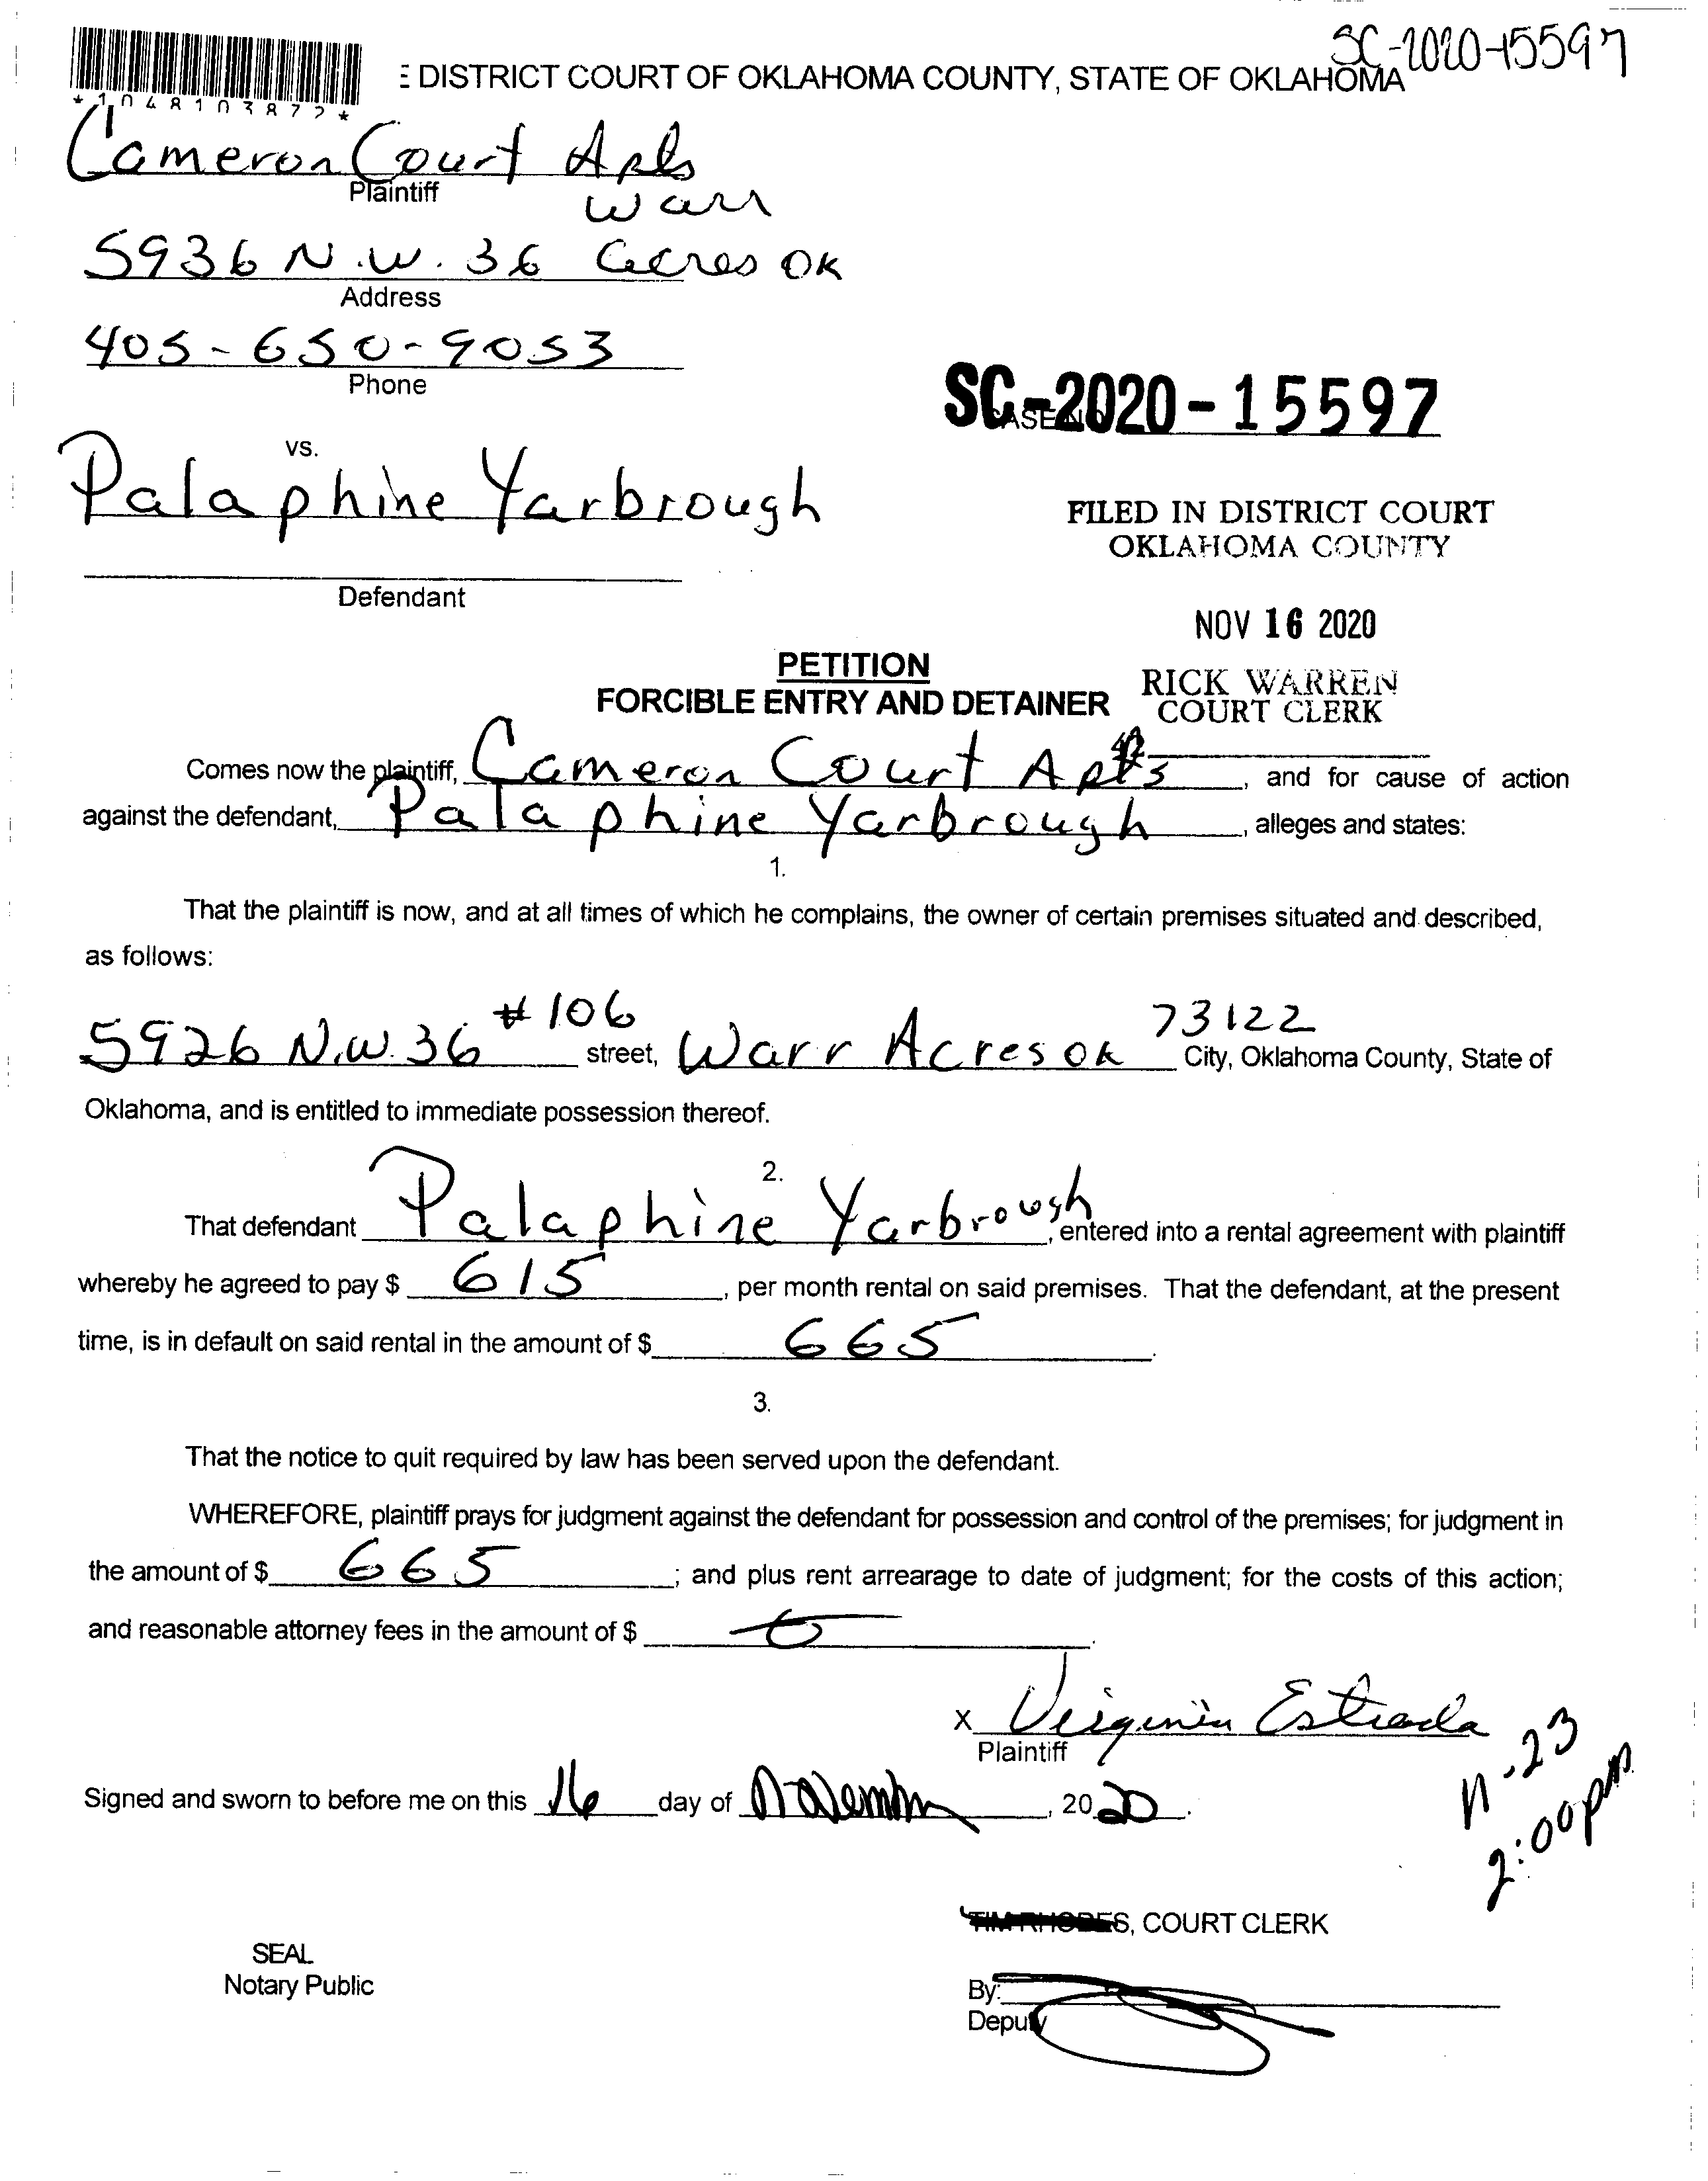 SC-2020-15597
E DISTRICT COURT OF OKLAHOMA COUNTY, STATE OF OKLAHOMA
*1048103872*
Cameron Court Apts
Plaintiff
Warr
5936 N.W. 36 Acres OK
Address
405-650-9053
Phone
SC-2020-15597
CASE NO.
vs.
Palaphine Yarbrough
Defendant
FILED IN DISTRICT COURT
OKLAHOMA COUNTY
NOV 16 2020
RICK WARREN
COURT CLERK
42
PETITION
FORCIBLE ENTRY AND DETAINER
Comes now the plaintiff, Cameron Court Apts, and for cause of action
against the defendant, Palaphine Yarbrough, alleges and states:
1.
That the plaintiff is now, and at all times of which he complains, the owner of certain premises situated and described,
as follows:
5926 N.W. 36 #106 street, Warr Acres OK 73122 City, Oklahoma County, State of
Oklahoma, and is entitled to immediate possession thereof.
2.
That defendant Palaphine Yarbrough, entered into a rental agreement with plaintiff
whereby he agreed to pay $ 615, per month rental on said premises. That the defendant, at the present
time, is in default on said rental in the amount of $ 665.
3.
That the notice to quit required by law has been served upon the defendant.
WHEREFORE, plaintiff prays for judgment against the defendant for possession and control of the premises; for judgment in
the amount of $ 665; and plus rent arrearage to date of judgment; for the costs of this action;
and reasonable attorney fees in the amount of $ 0.
X Virginia Estrada
Plaintiff
11-23
2:00pm
Signed and sworn to before me on this 16 day of November, 2020.
TIM RHODES, COURT CLERK
SEAL
Notary Public
By:
Deputy